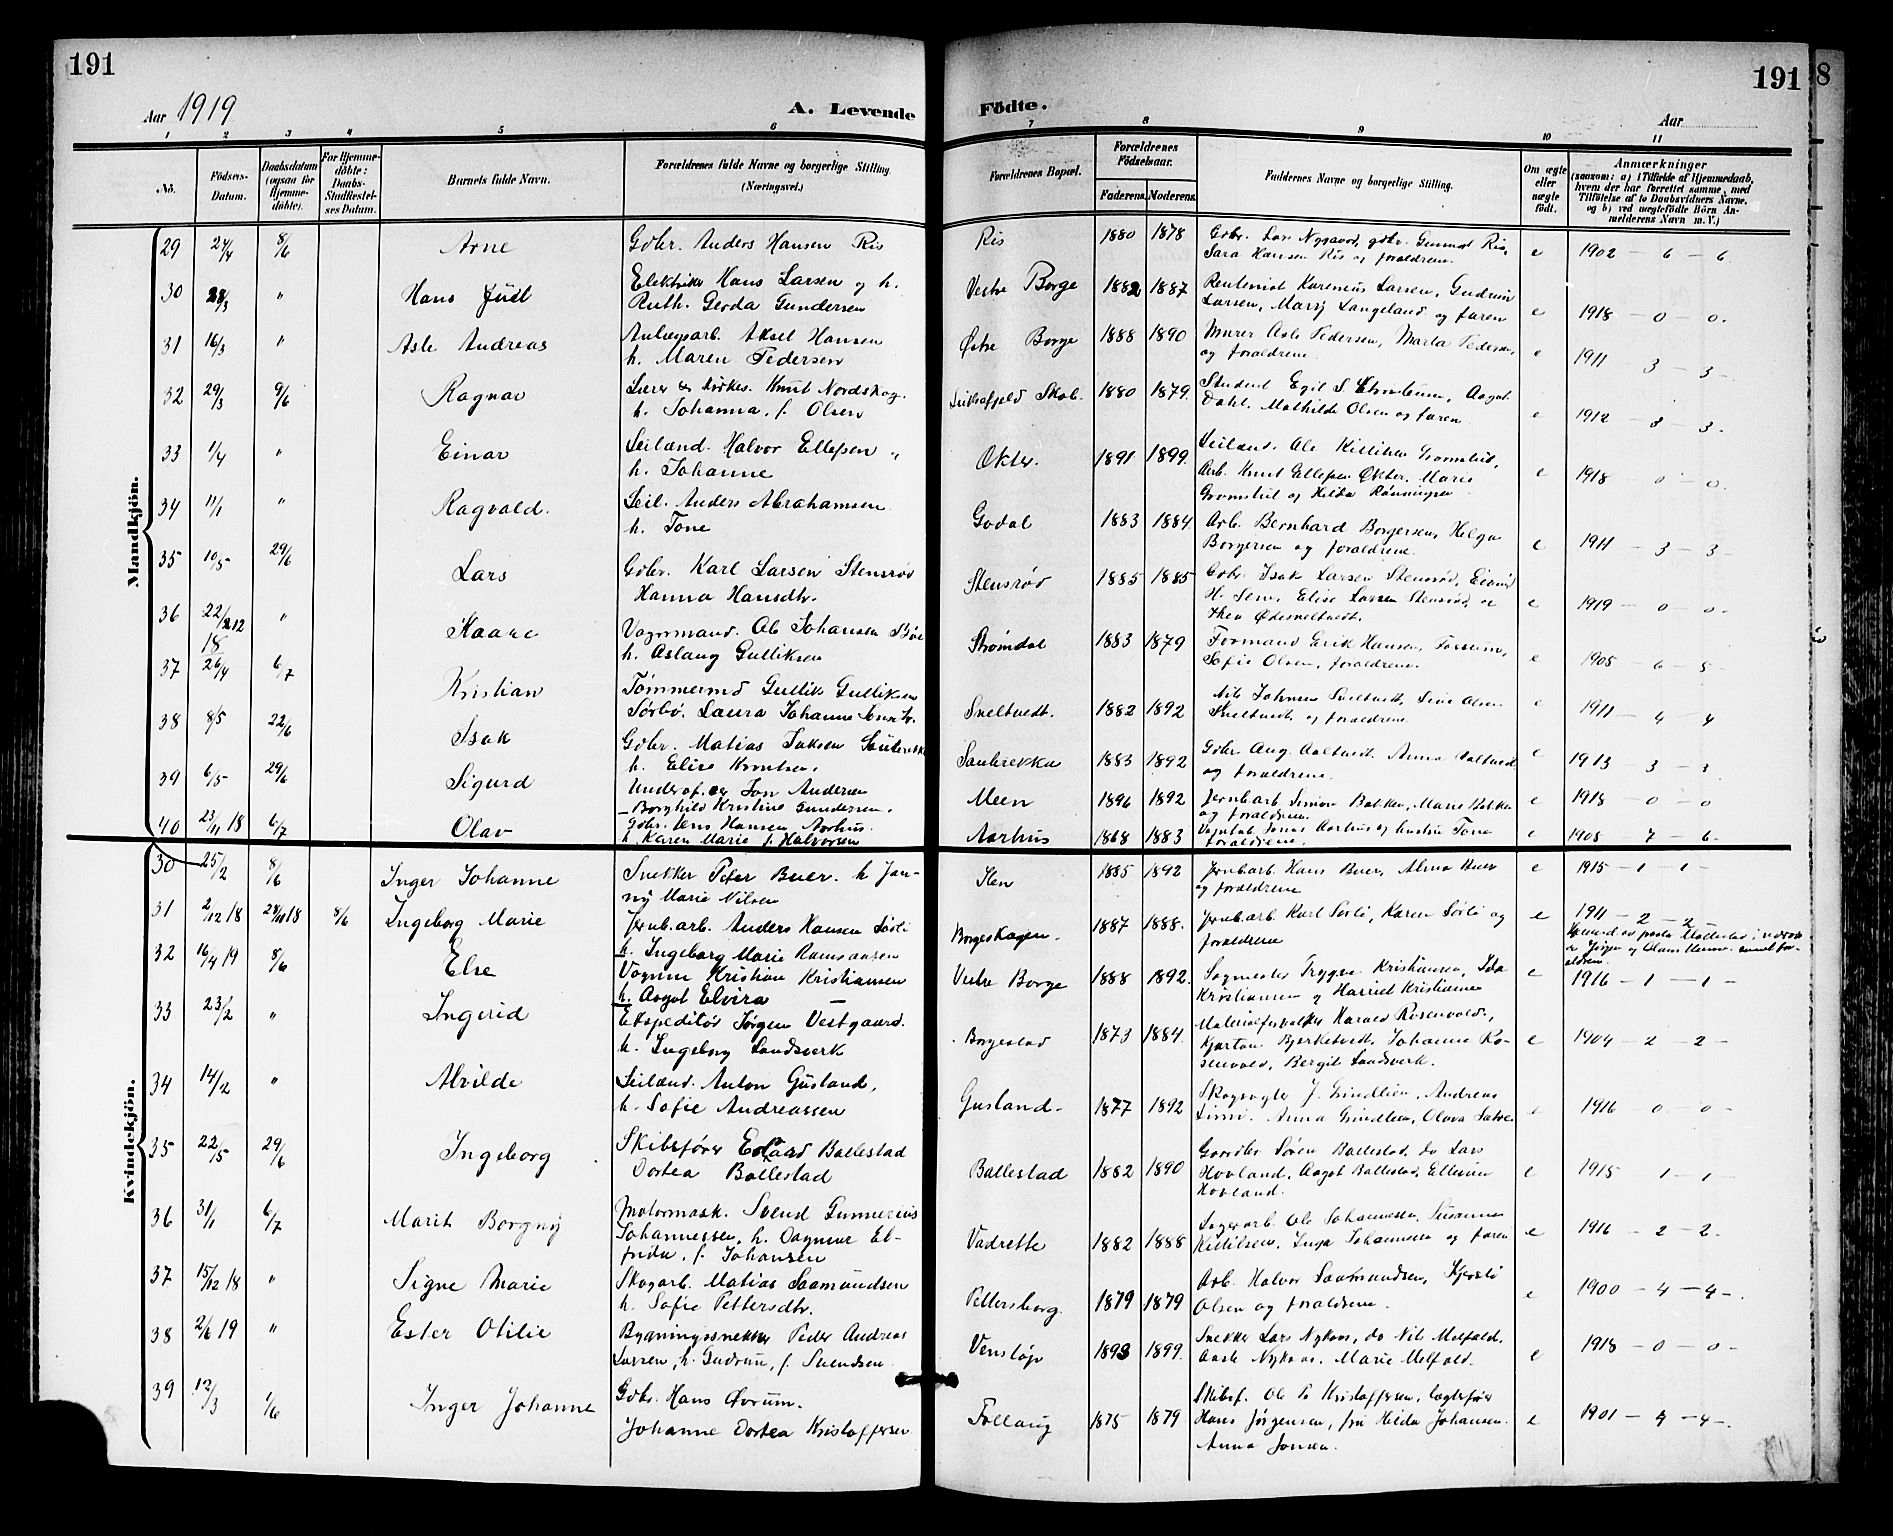 191
191
8
Aar 1919
A. Levende
Födte.
Aar
1 2 3 4 5 6 7 8 9 10 11
No.
Födsels-
Datum.
Daabsdatum
(ogsaa for
Hjemme-
döbte).
For Hjemme-
döbte:
Daabs-
Stadfæstel-
ses Datum.
Barnets fulde Navn.
Forældrenes fulde Navne og borgerlige Stilling.
(Næringsvei.)
Forældrenes Bopæl.
Forældrenes
Födselsaar.
Faderens. Moderens.
Faddernes Navne og borgerlige Stilling.
Om ægte
eller
uægte
födt.
Anmærkninger
(saasom: a) i Tilfælde af Hjemmedaab,
hvem der har forrettet samme, med
Tilföielse af to Daabsvidners Navne,
og b) ved uægtefödte Börn An-
melderens Navn m. V.)
Mandkjön.
29 24/4 8/6 Arne Gbr. Anders Hansen Ris Ris 1880 1878 Gbr. Lars Nysaard, gbr. Gunnar Ris, e 1902 - 6 - 6
Sara Hansen Ris og forældrene.
30 28/3 " Hans Juul Elektriker Hans Larsen og h. Vestre Borge 1882 1887 Rentenist Karenius Larsen, Gudrun e 1918 - 0 - 0.
Ruth Gerda Gundersen Larsen, Mary Langeland og faren
31 16/3 " Asle Andreas Anlægsarb. Aksel Hansen Østre Borge 1888 1890 Murer Asle Pedersen, Marta Pedersen, e 1911 3 - 3 -
h. Maren Pedersen og forældrene.
32 29/3 9/6 Ragnar Lærer & kirkes. Knut Nordskog. Skole. 1880 1879. Student Egil S. Aagot e 1912 - 3 3 -
h. Johanna, f. Olsen Dahl. Mathilde Olsen og faren
33 1/4 " Einar Leilænd. Halvor Ellefsen Økter. 1891 1899. Leilænd. Ole Kittilsen Gromstul, e 1918 - 0 - 0.
h. Johanne Arb. Knut Ellefsen Økter. Marie
Gromstul og Hilda Rønningen
34 11/1 " Ragvald. Leil. Anders Abrahamsen Godal 1883 1884 Arb. Bernhard Borgersen, Helga e 1911 - 3 - 3 -
h. Tone Borgersen og forældrene.
35 10/5 29/6 Lars Gbr. Karl Larsen Stensrød Stensrød 1885 1885 Gbr. Isak Larsen Stensrød, e 1919 - 0 - 0 -
Hanna Hansdtr. Elise Larsen Stensrød, og
Thea
36 22/12 18 " Kaare Vognmand. Ole Johansen Bøe Strømdal 1883 1879 Formand Erik Hansen, Fossum, e 1905 - 6 - 5 -
h. Aslaug Gulliksen Sofie Olsen, forældrene.
37 26/4 6/7 Kristian Tømmermd Gullik Gulliksen Sneltvedt. 1882 1892 Nils Johnsen Sneltvedt, Olsen e 1911 - 4 - 4
Sørbø. Laura Johanne Sneltvedt, og forældrene.
38 8/5 22/6 Isak Gbr. Matias Isaksen Sanberekka 1883 1892 Gbr. Aug. Aaltvedt, Anna Aaltvedt e 1913 - 3 - 3
h. Elise Knutsen. og forældrene.
39 6/5 29/6 Sigurd Underof. Jon Andersen Meen 1896 1892 Jernbarb. Simon Bakken, Marie Bakken e 1918 - 0 - 0
- Borghild Kristine Gundersen. og forældrene.
40 23/11 18 6/7 Olav Gbr. Jens Hansen Aarhus. Aarhus 1868 1883 Jonas Aarhus og hustru Tone e 1908 - 7 - 6 -
h. Karen Marie f. Halvorsen forældrene.
Kvindekjön.
30 25/2 8/6 Inger Johanne Snekker Peter Buer. h. Jan- 1885 1892 Jernb.arb. Hans Buer, Alma Buer e 1915 - 1 - 1 -
ny Marie Nilsen og forældrene
31 2/12 18 24/11 18 8/6 Ingeborg Marie Jernb.arb. Anders Hansen Sørli Borgeskogen. 1887 1888. Jernb.arb. Karl Sørli, Karen Sørli og e 1911 - 2 - 2 -
h. Ingeborg Marie Rasmussen forældrene
32 16/4 19 8/6 Else Vognm Kristian Kristiansen Vestre Borge 1888 1892. Sagmester Trygve Kristiansen, Ida e 1916 - 1 - 1 -
h. Aagot Elvira - Kristiansen og Harriet Kristiansen
33 23/2 " Ingerid Ekspeditør Jørgen Vestgaard. Borgestad 1873 1884. Materialforvalter Harald Rosenvold, e 1904 - 2 - 2 -
h. Ingeborg Landsverk Kjartan Bjerketvedt, Johanne Ro-
senvold, Bergit Landsverk.
34 14/2 " Alvilde Leilænd. Anton Gusland, Gusland - 1877 1892 Skogvogter J. Grindlien, Andreas e 1916 - 0 - 0 -
h. Sofie Andreassen Anna Grindlien, Olava
35 22/5 29/6 Ingeborg Skibsfører Edvard Ballestad Ballestad 1882 1890 Gaardbr Søren Ballestad, do Lars e 1915 1 - 1 -
Dortea Ballestad Hovland. Aagot Ballestad, Ellevine
Hovland.
36 31/1 6/7 Marit Borgny Motormask. Svend Gunnerius Vadrette 1882 1888 Lagerarb. Ole Johannesen, Susanne e 1916 - 2 - 2.
Johannessen, h. Dagmar El- Kittilsen, Inga Johannesen og faren
frida, f. Johansen
37 15/12 18 " Signe Marie Skogarb. Matias Saamundsen Pettersborg. 1879 1879 Arb. Halvor Saamundsen, Kjersti e 1900 - 4 - 4 -.
h. Sofie Pettersdtr. Olsen og forældrene.
38 2/6 19 " Ester Otilie Bygningssnekker Peder Andreas Vensløp 1893 1899. Snekker Lars Nykaas, do Nils Melfald. e 1918 - 0 - 0 -
Larsen, h. Gudrun, f. Svendsen Aaste Nykaas, Marie Melfald.
39 12/3 1/6 Inger Johanne Gbr. Hans Øvrum. Follaug 1875 1879 Skibsf. Ole P. Kristoffersen, e 1901 - 4 - 4 -.
Johanne Dortea Kristoffersen Hans Jørgensen, fru Hilda Johansen.
Anna Jonsen.